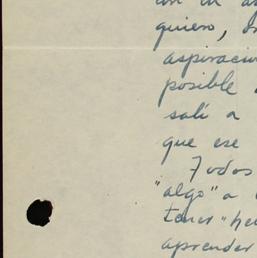 quiero,
aspiracio
posible
salí a
que ese
Todos
"algo" a
tener "he
aprender